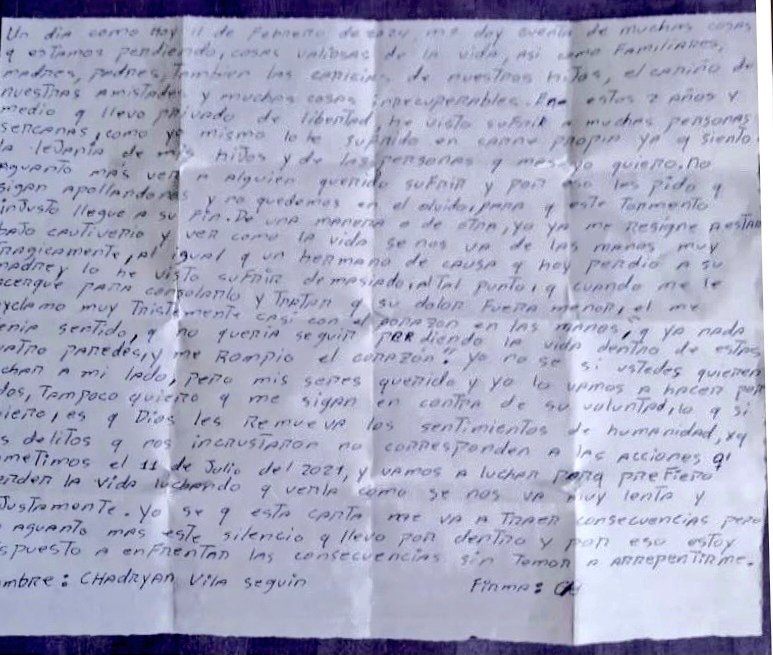 Un día como Hoy 11 de Febrero de 2024, me doy cuenta de muchas cosas
q estamos perdiendo, cosas valiosas de la vida, así como Familiares,
madres, padres, Tambien las caricias de nuestros Hijos, el cariño de
nuestras amistades y muchas cosas irrecuperables. estos 2 años y
medio q llevo privado de libertad, he visto sufrir a muchas personas
sercanas, como yo mismo lo he sufrido en carne propia ya q siento
la lejanía de mis hijos y de las personas q mas yo quiero. no
aguanto más ver a alguien querido sufrir y por eso les pido q
sigan apollandonos y no quedemos en el olvido, para q este Tormento
injusto llegue a su Fin. De una manera o de otra, yo ya me resigne a estar
bajo cautiverio y ver como la vida se nos va de las manos muy
Tragicamente, al igual q un hermano de causa q hoy perdio a su
madre y lo he visto sufrir demasiado, al Tal punto, q cuando me le
acerque para consolarlo y Tratar q su dolor Fuera menor, el me
exclamo muy Tristemente casi con el corazón en las manos, q ya nada
Tenia sentido, q no queria seguir perdiendo la vida dentro de estas
cuatro paredes, y me Rompio el corazón. yo no se si ustedes quieren
luchar a mi lado, pero mis seres querido y yo lo vamos a hacer por
Tampoco quiero q me sigan en contra de su voluntad, lo q si
quiero, es q Dios les Remueva los sentimientos de humanidad, xq
los delitos q nos incrustaron no corresponden a las acciones q'
cometimos el 11 de Julio del 2021, y vamos a luchar porq prefiero
perder la vida luchando q verla como se nos va muy lenta y
injustamente. Yo se q esta carta me va a Traer consecuencias pero
no aguanto mas este silencio q llevo por dentro y por eso estoy
dispuesto a enfrentar las consecuencias sin Temor a arrepentirme.
Nombre: CHADRYAN Vila Seguin Firma: